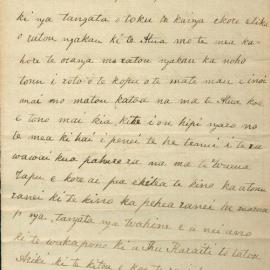 ki nga tangata o toku te kainga ekore etika
o ratou ngakau ki te Atua mo te mea ka
hore te oranga mo ratou ngakau ka noho
tonu i roto o te kopu o te mate mau e inoi
mai mo matou katoa na ma te Atua koe
i tono mai kia kite i on hipi ngaro no
te mea ki hai i penei te he tenui i te ra
wawai kua pahure ra na ma te Wairua
Tapu e kore ai pua te kino ka
ranei ki te kino ka pehea ranei
nga tangata nga Wahine e a nei ano
ki te wakapono ki a Ihu Karaiti to tatou
Ariki ki te kitea e koe te